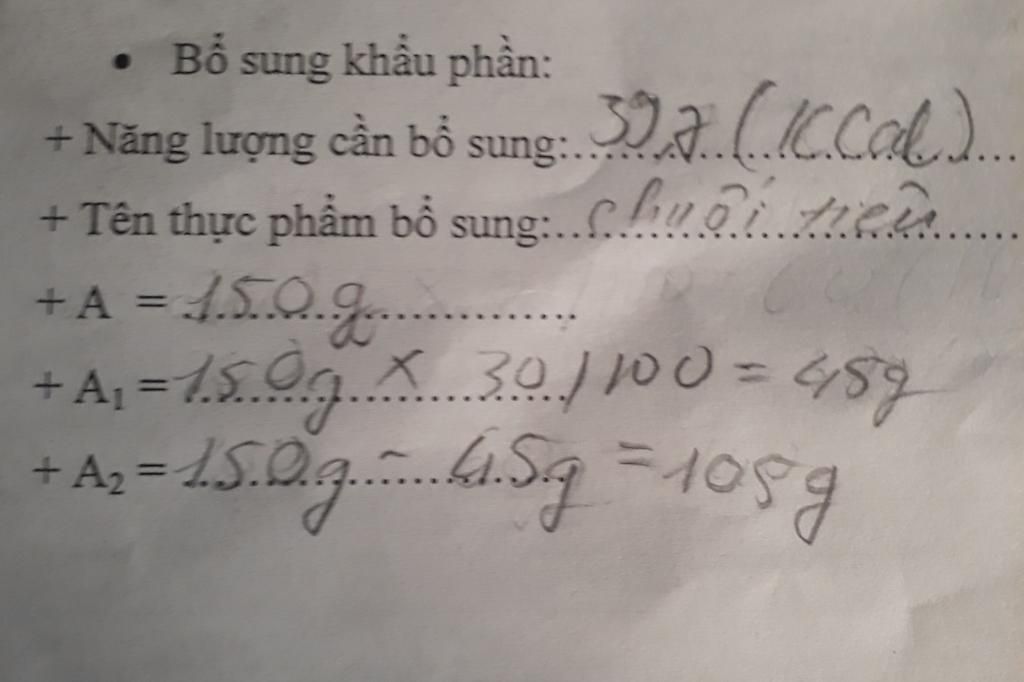 • Bổ sung khẩu phần:
+ Năng lượng cần bổ sung: (KCal)
+ Tên thực phẩm bổ sung: chuối tiêu
+ A = 150g
+ A₁ = 150g × 30/100 = 45g
+ A₂ = 150g - 45g = 105g